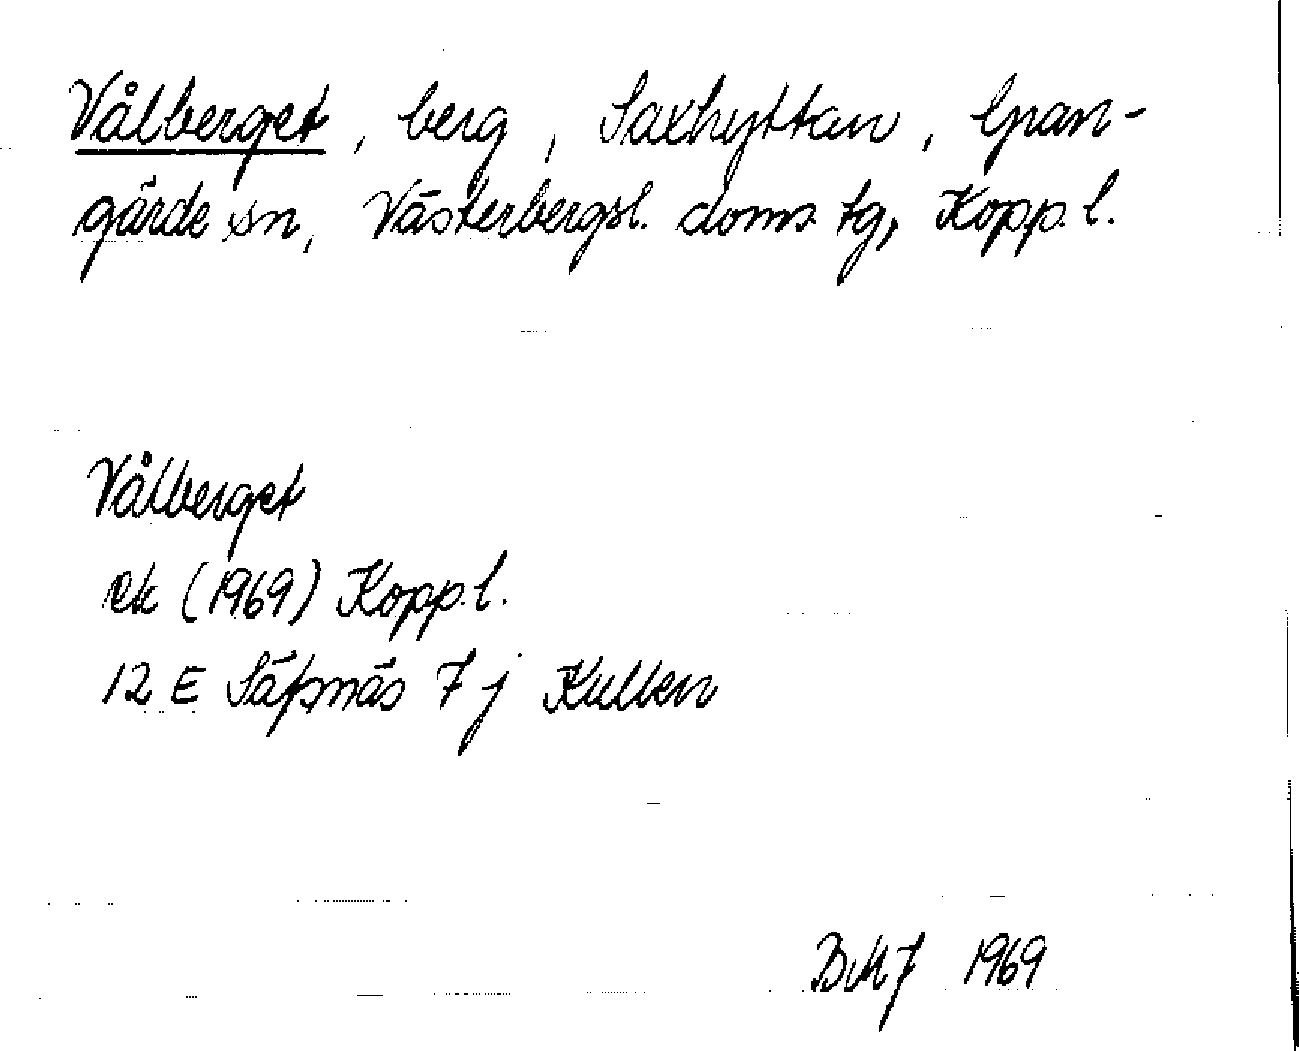 Vålberget, berg, Saxhyttan, Gran-
gärde sn, Västerbergsl. doms. tg, Kopp. l.
Vålberget
ek (1969) Kopp. l.
12 E Säfsnäs 7 j Kullen
BMJ 1969